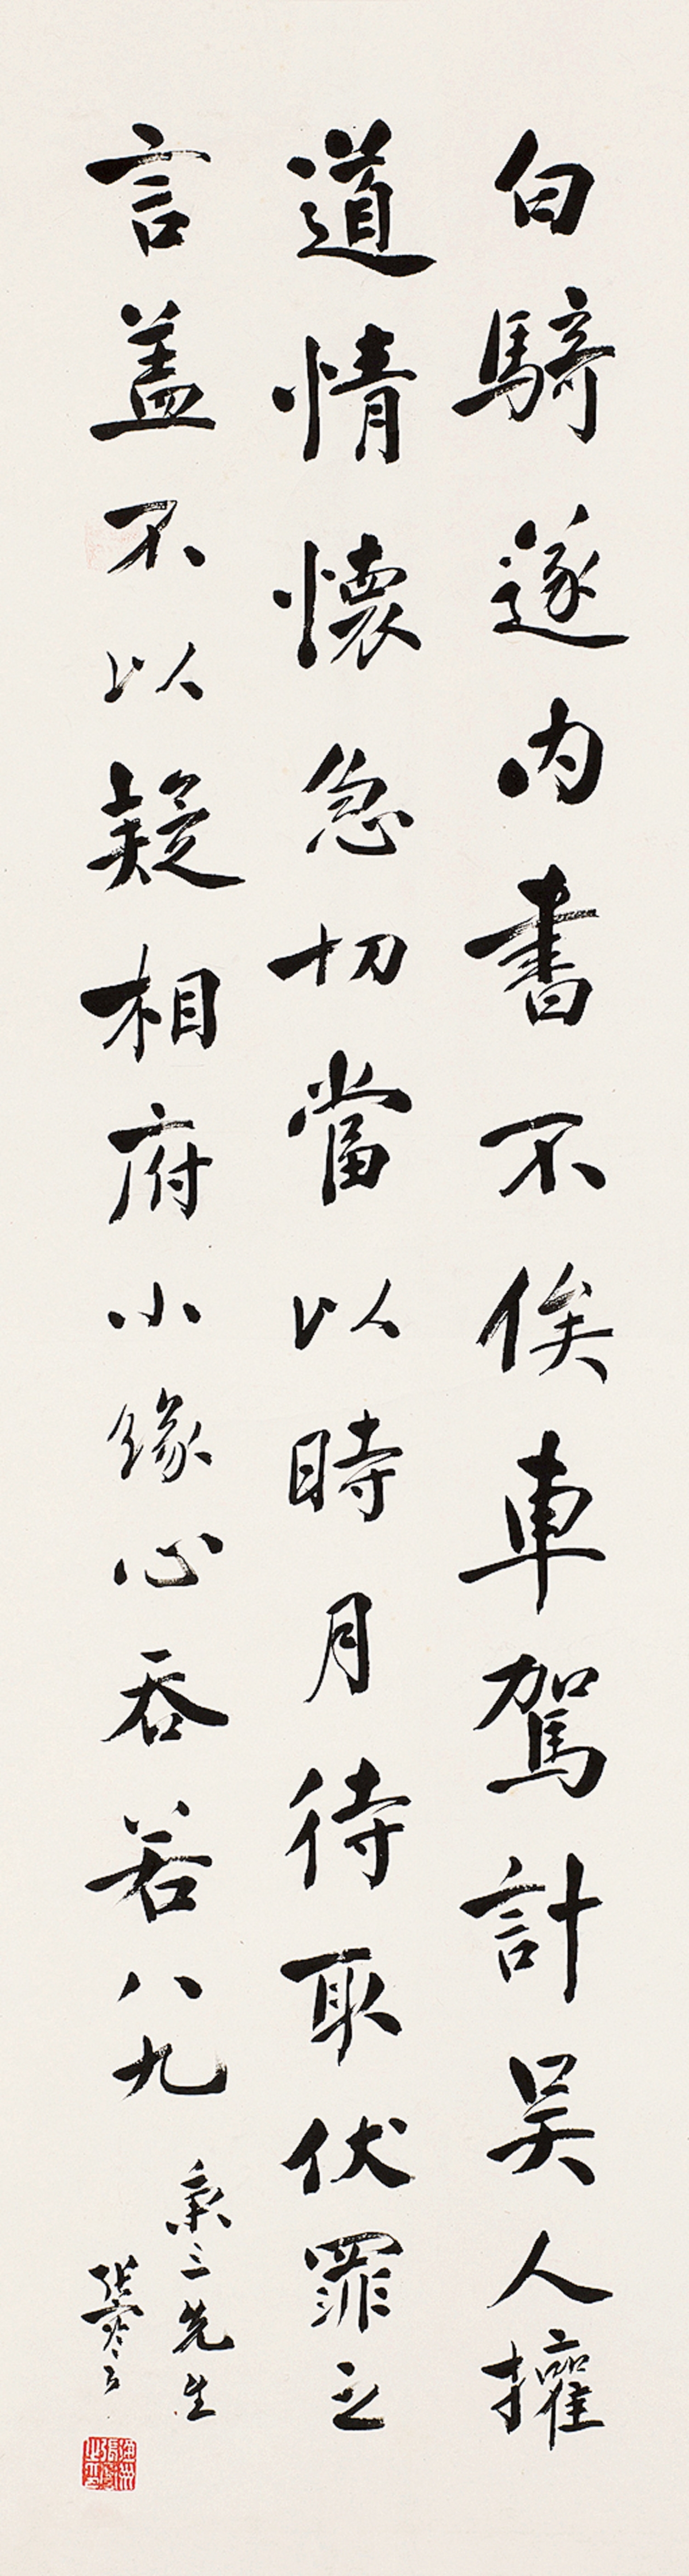 白騎遂内書不俟車駕計吴人擁
道情懷急切當以時月待取伏罪之
言盖不以疑相府小緣心吞若八九
秉三先生
張謇